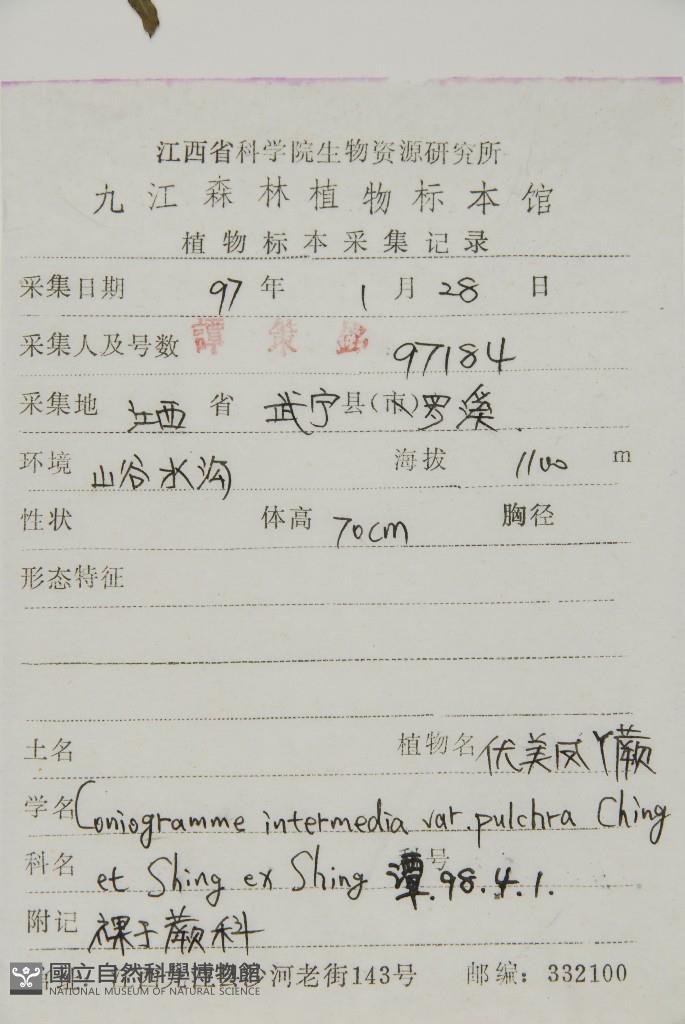 江西省科学院生物资源研究所
九江森林植物标本馆
植物标本采集记录
采集日期 97 年 1 月 28 日
采集人及号数 譚策铭 97184
采集地 江西 省 武宁县(市)罗溪.
环境 山谷水沟 海拔 1100 m
性状 体高 70cm 胸径
形态特征
土名 植物名 优美凤丫蕨
学名 Coniogramme intermedia var. pulchra Ching
科名 et Shing ex Shing 科号 譚.98.4.1.
附记 裸子蕨科
江西九江县沙河老街143号 邮编：332100
國立自然科學博物館
NATIONAL MUSEUM OF NATURAL SCIENCE